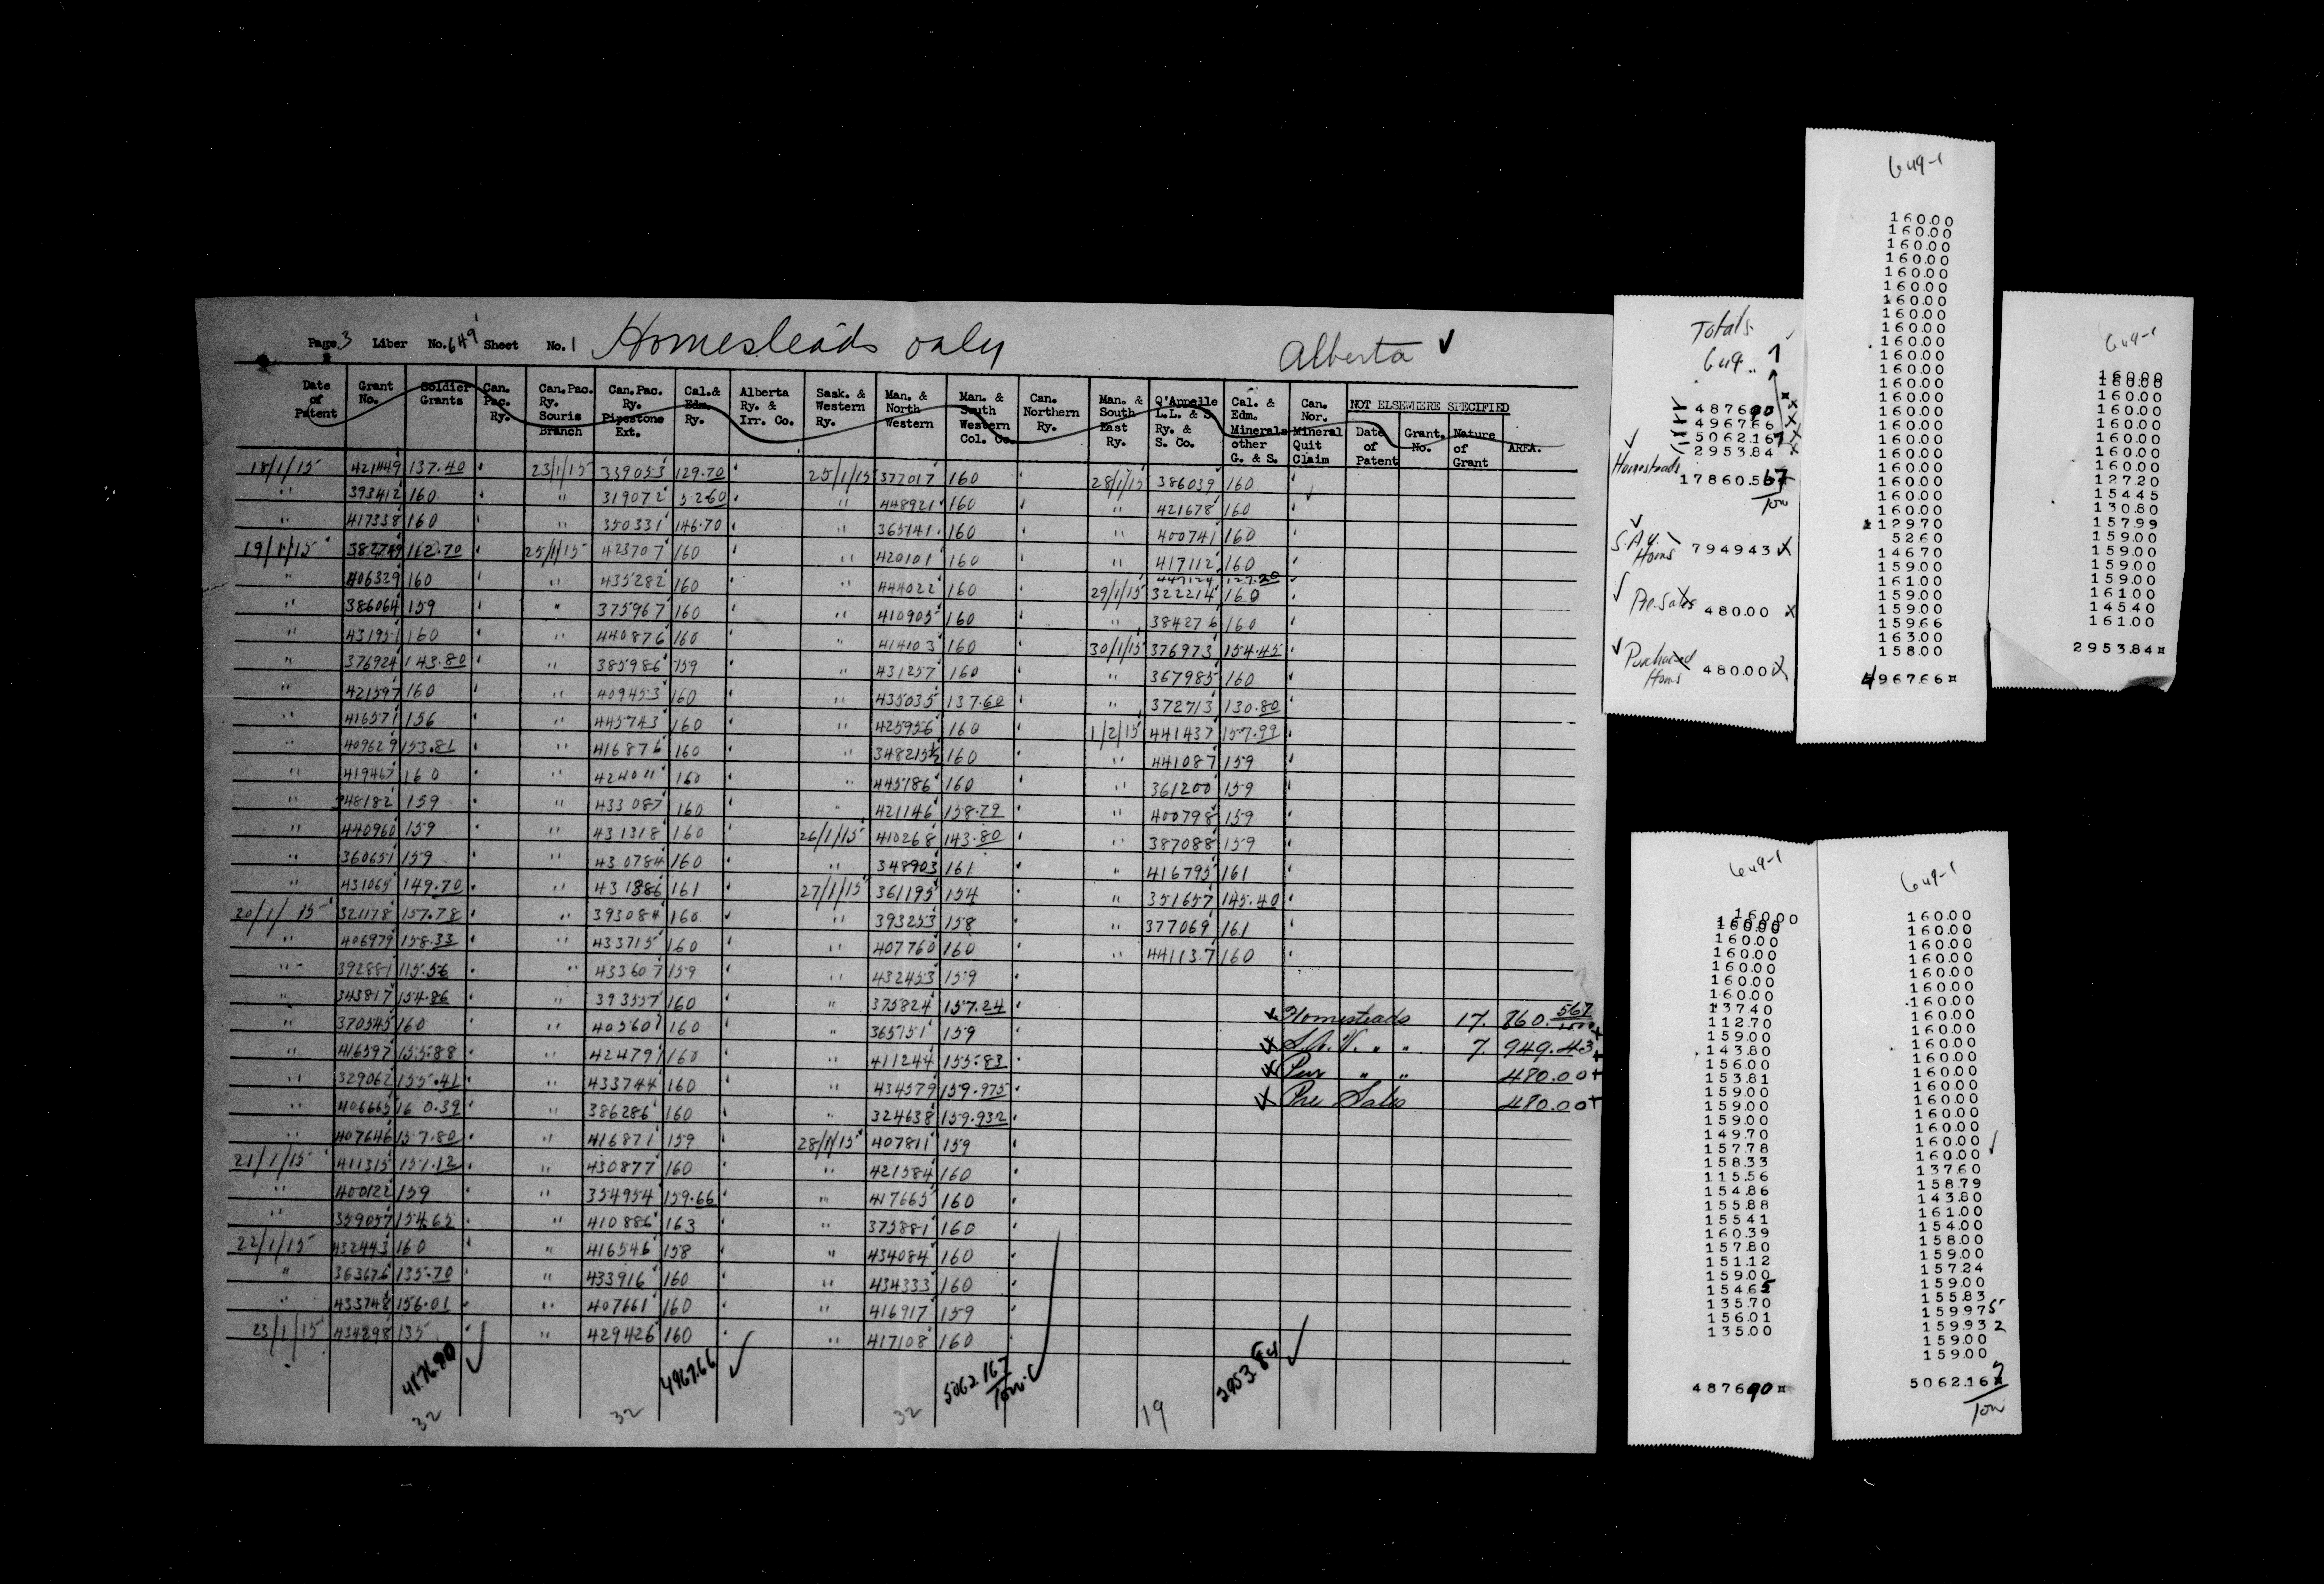 Page 3 Liber No. 649 Sheet No. 1 Homesteads only Alberta ✓
Date of Patent | Grant No. | Soldier Grants | Can. Pac. Ry. | Can.Pac. Ry. Souris Branch | Can.Pac. Ry. Pipestone Ext. | Cal.& Edm. Ry. | Alberta Ry. & Irr. Co. | Sask. & Western Ry. | Man. & North Western | Man. & South Western Col. Co. | Can. Northern Ry. | Man. & South East Ry. | Q'Appelle L.L. & S. Ry. & S. Co. | Cal. & Edm. Minerals other G. & S. | Can. Nor. Mineral Quit Claim | NOT ELSEWHERE SPECIFIED Date of Patent | Grant. No. | Nature of Grant | AREA.
18/1/15 421449 137.40 23/1/15 339053 129.70 25/1/15 377017 160 28/1/15 386039 160
" 393412 160 " 319072 52.60 " 448921 160 " 421678 160
" 417338 160 " 350331 146.70 " 365141 160 " 400741 160
19/1/15 382749 112.70 25/1/15 423707 160 " 420101 160 " 417112 160
447124 127.20
" 406329 160 " 435282 160 " 444022 160 29/1/15 322214 160
" 386064 159 " 375967 160 " 410905 160 " 384276 160
" 431951 160 " 440876 160 " 414103 160 30/1/15 376973 154.45
" 376924 143.80 " 385986 159 " 431257 160 " 367985 160
" 421597 160 " 409453 160 " 435035 137.60 " 372713 130.80
" 416571 156 " 445743 160 " 425956 160 1/2/15 441437 157.99
" 409629 153.81 " 416876 160 " 348215½ 160 " 441087 159
" 419467 160 " 424011 160 " 445186 160 " 361200 159
" 348182 159 " 433087 160 " 421146 158.79 " 400798 159
" 440960 159 " 431318 160 26/1/15 410268 143.80 " 387088 159
" 360651 159 " 430784 160 " 348903 161 " 416795 161
" 431065 149.70 " 431386 161 27/1/15 361195 154 " 351657 145.40
20/1/15 321178 157.78 " 393084 160 " 393253 158 " 377069 161
" 406979 158.33 " 433715 160 " 407760 160 " 441137 160
" 392881 115.56 " 433607 159 " 432453 159
" 343817 154.86 " 393557 160 " 375824 157.24
" 370545 160 " 405601 160 " 365751 159 x Homesteads 17. 860.567
" 416597 155.88 " 424791 160 " 411244 155.83 x S.A.V. " " 7. 949.43
" 329062 155.41 " 433744 160 " 434579 159.975 x Pur " " 480.00
" 406665 160.39 " 386286 160 " 324638 159.932 x Pre Sales 480.00
" 407646 157.80 " 416871 159 28/1/15 407811 159
21/1/15 411315 151.12 " 430877 160 " 421584 160
" 400122 159 " 354954 159.66 " 417665 160
" 359057 154.65 " 410886 163 " 375881 160
22/1/15 432443 160 " 416546 158 " 434084 160
" 363676 135.70 " 433916 160 " 434333 160
" 433748 156.01 " 407661 160 " 416917 159
23/1/15 434298 135 " 429426 160 " 417108 160
4876.90 ✓ 4967.66 ✓ 5062.167 ✓ 2953.84 ✓
32 32 32 19
Totals
649 1
4876 90
4967.66
5062.167
2953.84
✓ Homesteads
17860.567
✓ S.A.V. Homs 7949 43
✓ Pre. Sales 480.00
✓ Purchased Homs 480.00
649-1
160.00
160.00
160.00
160.00
160.00
160.00
160.00
160.00
160.00
160.00
160.00
160.00
160.00
160.00
160.00
160.00
160.00
160.00
160.00
160.00
160.00
160.00
129.70
52.60
146.70
159.00
161.00
159.00
159.00
159.66
163.00
158.00
4967.66
649-1
160.00
160.00
160.00
160.00
160.00
160.00
160.00
160.00
127.20
154.45
130.80
157.99
159.00
159.00
159.00
159.00
161.00
145.40
161.00
2953.84
649-1
160.00
160.00
160.00
160.00
160.00
160.00
160.00
137.40
112.70
159.00
143.80
156.00
153.81
159.00
159.00
159.00
149.70
157.78
158.33
115.56
154.86
155.88
155.41
160.39
157.80
151.12
159.00
154.65
135.70
156.01
135.00
4876 90
649-1
160.00
160.00
160.00
160.00
160.00
160.00
160.00
160.00
160.00
160.00
160.00
160.00
160.00
160.00
160.00
160.00
160.00
160.00
137.60
158.79
143.80
161.00
154.00
158.00
159.00
157.24
159.00
155.83
159.975
159.932
159.00
159.00
5062.167